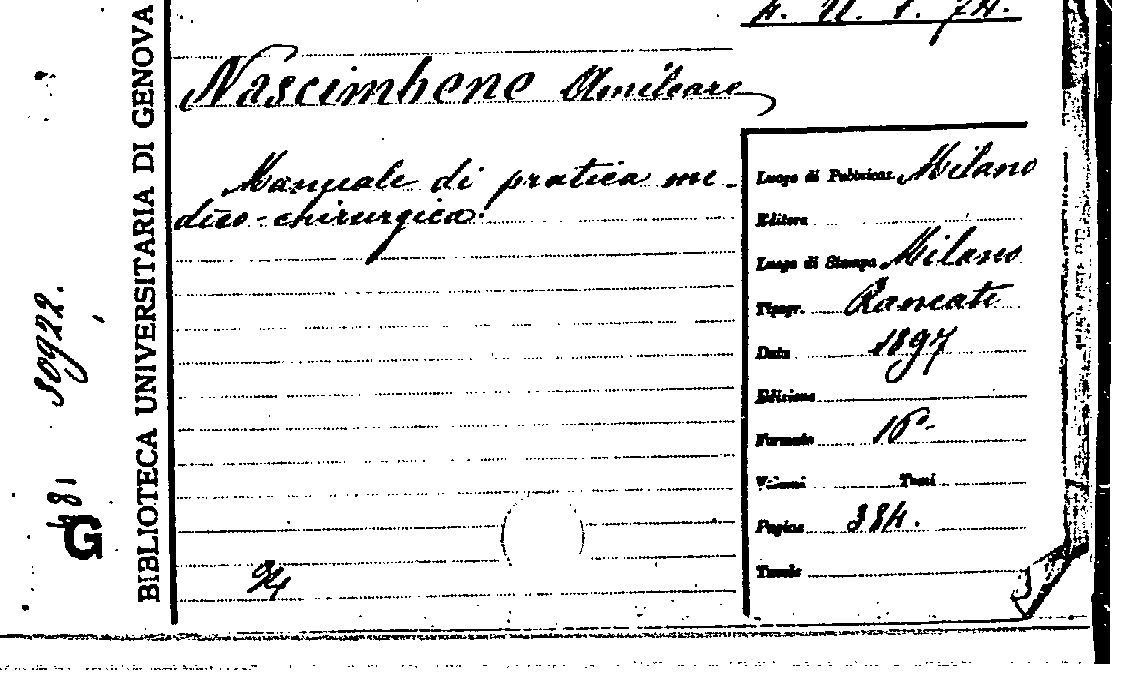 Nascimbene Amilcare
Manuale di pratica me-
dico-chirurgica.
94
Luogo di Pubblicaz. Milano
Editore
Luogo di Stampa Milano
Tipogr. Rancati
Data 1897
Edizione
Formato 16°
Volumi Tomi
Pagine 384.
Tavole
BIBLIOTECA UNIVERSITARIA DI GENOVA
30922.
G